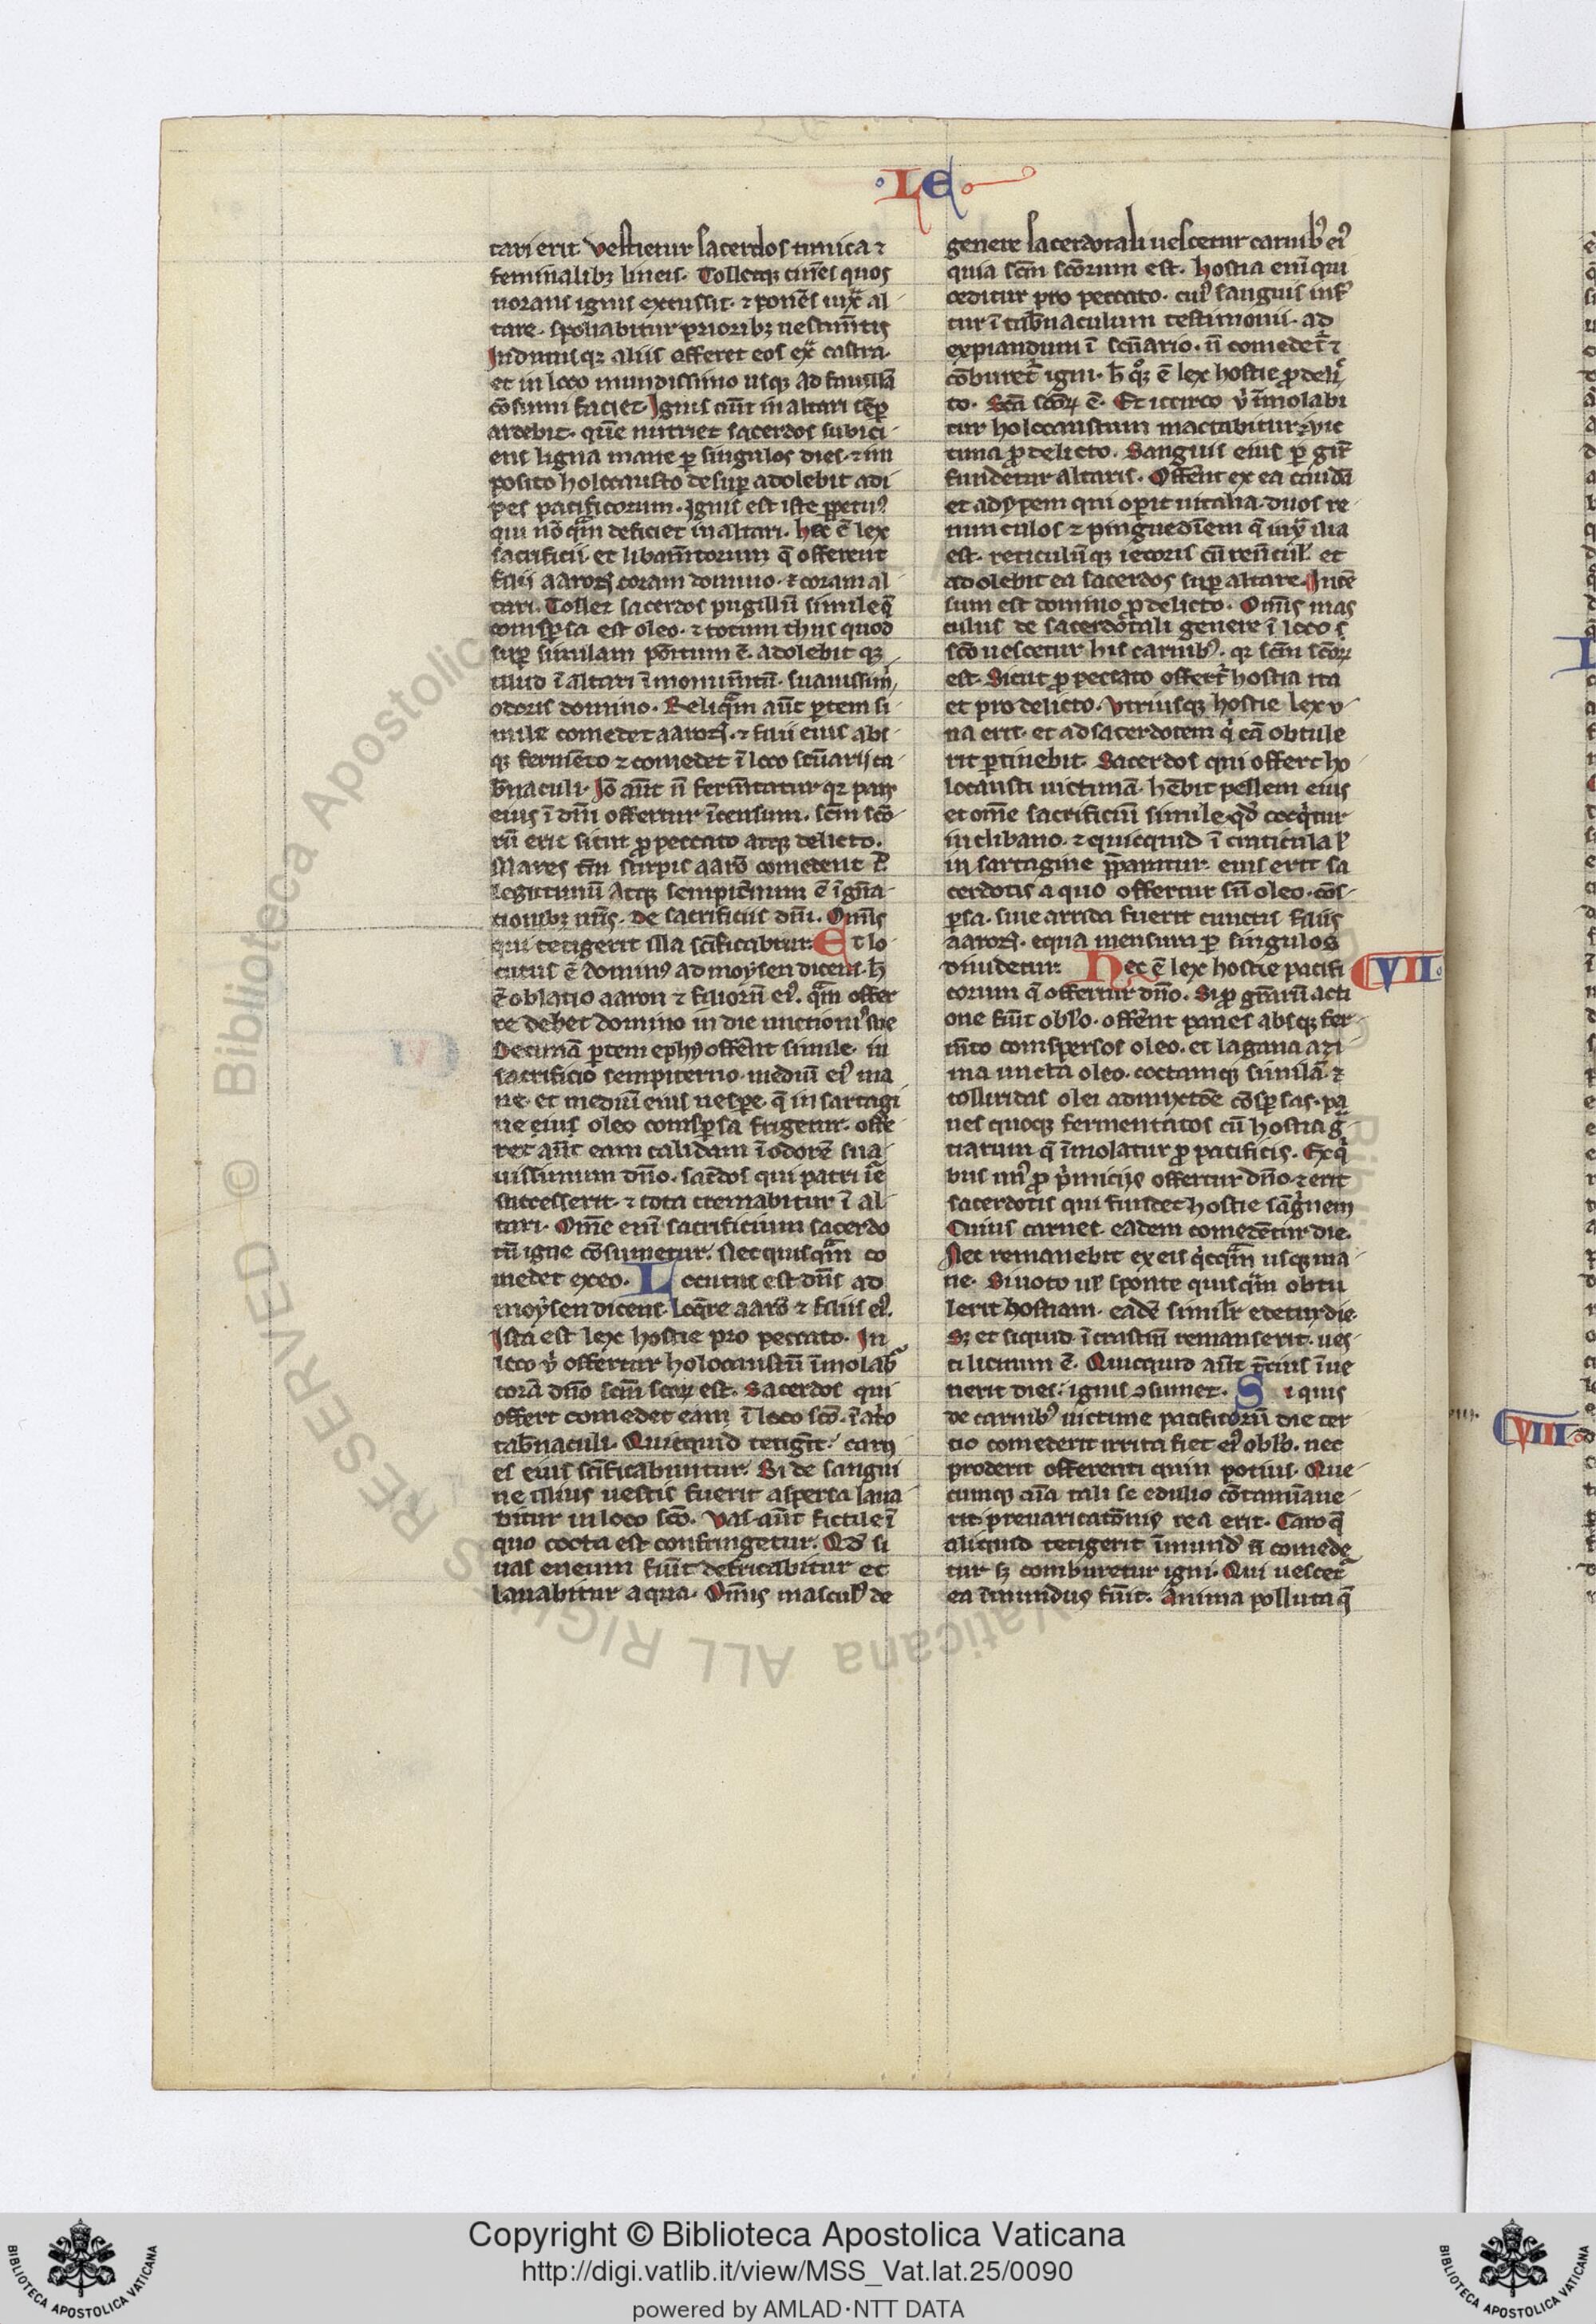 · L E ·
tari erit. Vestietur sacerdos tunica ⁊
feminalibꝫ lineis. Tolletqꝫ cineres quos
uorans ignis exussit. ⁊ ponēs iuxͣ al-
tare. spoliabitur prioribꝫ uestim̄tis
Indutusqꝫ aliis efferet eos exͣ castra.
et in loco mundissimo usqꝫ ad fauillā
cōsumi faciet. Ignis aūt in altari sēp̄
ardebit. quē nutriet sacerdos subici-
ens ligna mane ꝑ singulos dies. ⁊ im
posito holocausto desuꝑ adolebit adi
pes pacificorum. Ignis est iste ꝑpetuꝰ
qui nō qͣm deficiet in altari. hec ē lex
sacrificii et libam̄torum q̄ offerent
filii aaron coram domino. ⁊ coram al-
tari. Tollet sacerdos pugillū simile q̄
conspsa est oleo. ⁊ totum thus quod
suꝑ similam pōitum ē. adolebit qꝫ
illud ī altari ī monum̄tū. suauissimi
odoris domino. Reliqͣm aūt ꝑtem si-
mile comedet aaron. ⁊ filii eius abs-
qꝫ fermēto ⁊ comedet ī loco scūarij ta-
b̄naculi. Iō aūt n̄ ferm̄tatur qꝛ pars
eius ī dn̄i offertur īcensum. scm̄ scō-
rū erit sicut ꝓ peccato atqꝫ delicto.
Mares tm̄ stirpis aarō comedent
legittimū atqꝫ sempit̄num ē ī gn̄a-
tionibꝫ ur̄is. de sacrificiis dn̄i. Om̄is
qui tetigerit illa sc̄ificabitur. Et lo-
cutus ē dominꝰ ad moysen dicens. h̄
ē oblatio aaron ⁊ filiorū eiꝰ. qͣm offer
re debet domino in die unctionis sue
Decimā ꝑtem ephy offerēt simile. in
sacrificio sempiterno. mediū eiꝰ ma
ne. et mediū eius uespe. q̄ in sartagi
ne eius oleo conspsa frigetur. offe-
ret aūt eam calidam ī odorē sua-
uissimum dn̄o. sac̄dos qui patri iē
successerit. ⁊ tota cremabitur ī al-
tari. Om̄e enī sacrificium sacerdo
tū igne cōsumetur. Nec quisqͣm co
medet ex eo. Locutus est dn̄s ad
moysen dicens. Loq̄re aarō ⁊ filiis eiꝰ.
Ista est lex hostie pro peccato. In
loco ꝟ offertur holocaustū īmolab̄
corā dn̄o scm̄ scoꝝ est. Sacerdos qui
offert comedet eam ī loco scō. ī atͥo
tab̄naculi. Quicquid tetigīt carn
es eius sc̄ificabuntur. Si de sangui
ne illius uestis fuerit aspersa laua-
bitur in loco scō. Vas aūt fictile ī
quo cocta est confringetur. Qd̄ si
uas eneum fuīt defricabitur et
lauabitur aqua. Om̄is masculꝰ de
genere sacerdotali uescetur carnibꝰ eiꝰ
quia scm̄ scōrum est. hostia enī que
ceditur pro peccato. cuiꝰ sanguis inf̄
tur ī tab̄naculum testimonii. ad
expiandum ī scūario. n̄ comedet̄ ⁊
cōburet̄ igni. h̄ qͦqꝫ ē lex hostie ꝓ delic
to. Scā scōꝝ ē. Et iccirco ꝟ īmolabi
tur holocaustum mactabitur ⁊ uic
tima ꝓ delicto. Sanguis eius ꝑ gir̄
fundetur altaris. Offerēt ex ea caudā
et adypem qui oꝑit uitalia. duos re
nunculos ⁊ pinguedīem q̄ iuxͣ ilia
est. reticulūqꝫ iecoris cū renūcul̄ et
adolebit ea sacerdos suꝑ altare. Incē
sum est domino ꝓ delicto. Om̄is mas
culus de sacerdotali genere ī loco s
scō uescetur his carnibꝰ. qꝛ scm̄ scōꝝ
est. Sicut ꝓ peccato offert̄ hostia ita
et pro delicto. Vtriusqꝫ hostie lex v-
na erit. et ad sacerdotem qͥ eā obtule
rit ꝑtinebit. Sacerdos qui offert ho-
locausti uictimā. hēbit pellem eius
et om̄e sacrificiū simile. qd̄ coqͥtur
in clibano. ⁊ quicquid ī craticula ł
in sartagine p̄paratur. eius erit sa
cerdotis a quo offertur siū oleo. cōs-
ꝑsa. siue arrida fuerit cunctis filiis
aaron. equa mensura ꝑ singulos
diuidetur. Hec ē lex hostie pacifi VII
corum q̄ offertur dn̄o. Si ꝓ gr̄arū acti
one fuīt obl̄o. offerēt panes absqꝫ fer-
m̄to conspersos oleo. et lagana azi-
ma uncta oleo. coctamqꝫ similā. ⁊
colliridas olei admixtōe cōsꝑsas. pa
nes quoqꝫ fermentatos cū hostia gͣ
tiarum q̄ īmolatur ꝓ pacificis. Ex qͥ
bus unꝰ ꝓ pͥmicijs offertur dn̄o. ⁊ erit
sacerdotis qui fundet hostie sāgͥnem
Cuius carnes eadem comedētur die.
Nec remanebit ex eis qͥcqͣm usqꝫ ma-
ne. Si uoto uł sponte quisqͣm obtu
lerit hostiam. eadē similr̄ edetur die.
Sꝫ et siquid ī crastinū remanserit. ues-
ci licitum ē. Quicquid aūt t̄cius īue
nerit dies. ignis ꝯsumet. Si quis
de carnibꝰ uictime pacificorū die ter
tio comederit irrita fiet eiꝰ obl̄o. nec
proderit offerenti quin potius. Que-
cumqꝫ aīa tali se edulio cōtamīaue-
rit. preuaricatōnis rea erit. Caro q̄
aliquid tetigerit īmundꝰ n̄ comede
tur sꝫ comburetur igni. Qui uescet̄
ea īmundus fuīt. Anima polluta q̄
VIII
Copyright © Biblioteca Apostolica Vaticana
http://digi.vatlib.it/view/MSS_Vat.lat.25/0090
powered by AMLAD·NTT DATA
BIBLIOTECA APOSTOLICA VATICANA
BIBLIOTECA APOSTOLICA VATICANA
© Biblioteca Apostolica Vaticana ALL RIGHTS RESERVED